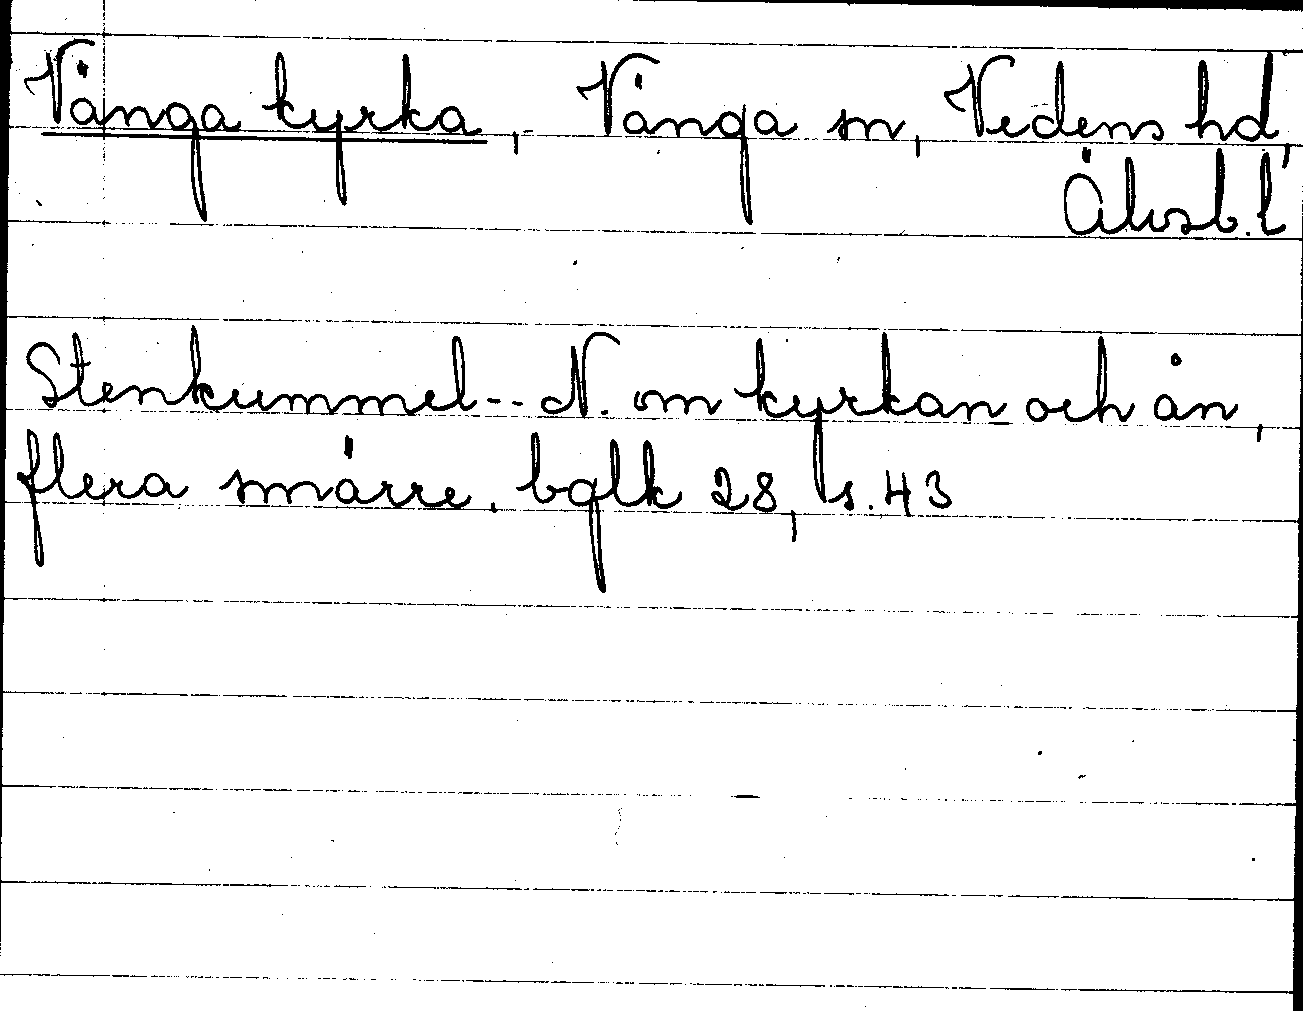 Vänga kyrka, Vänga sn, Vedens hd,
Älvsb.l
Stenkummel -- N. om kyrkan och ån,
flera smärre. bglk 28, s. 43